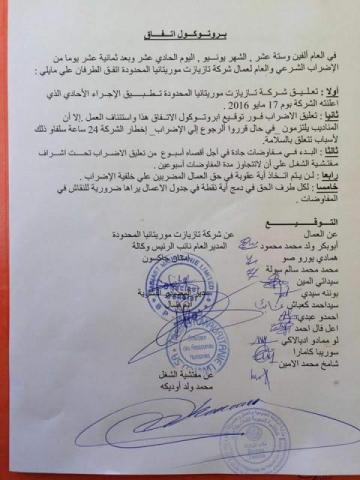 بروتوكول اتفاق
في العام ألفين وستة عشر , الشهر يونيو , اليوم الحادي عشر وبعد ثمانية عشر يوما من
الإضراب الشرعي والعام لعمال شركة تازيازت موريتانيا المحدودة اتفق الطرفان علي مايلي :
أولا : تعليق شركة تازيازت موريتانيا المحدودة تطبيق الإجراء الأحادي الذي
اعلنته الشركة يوم 17 مايو 2016 .
ثانيا : تعليق الاضراب فور توقيع ابروتوكول الاتفاق هذا واستئناف العمل. إلا أن
المناديب يلتزمون في حال قرروا الرجوع إلي الإضراب إخطار الشركة 24 ساعة سلفاو ذلك
لأسباب تتعلق بالسلامة.
ثالثا : البدء في مفاوضات جادة في أجل أقصاه أسبوع من تعليق الاضراب تحت اشراف
مفتشية الشغل علي أن لاتتجاوز مدة المفاوضات أسبوعين.
رابعا : لن يتم اتخاذ أية عقوبة في حق العمال المضربين علي خلفية الإضراب .
خامسا : لكل طرف الحق في دمج أية نقطة في جدول الاعمال يراها ضرورية للنقاش في
المفاوضات .
التوقيع
عن العمال
عن شركة تازيازت موريتانيا المحدودة
أبوبكر ولد محمد محمود
المدير العام نائب الرئيس وكالة
همادي يورو صو
جاكسون
محمد محمد سالم سولة
سيداتي المين
بونه سيدي
سيداحمد كعباش
احمدو عبدي
اعل فال احمد
لو ممادو اديالاكي
سوريبا كامارا
شامخ محمد الامين
Directeur
des Ressources
Humaines
عن مفتشية الشغل
محمد ولد أوديكه